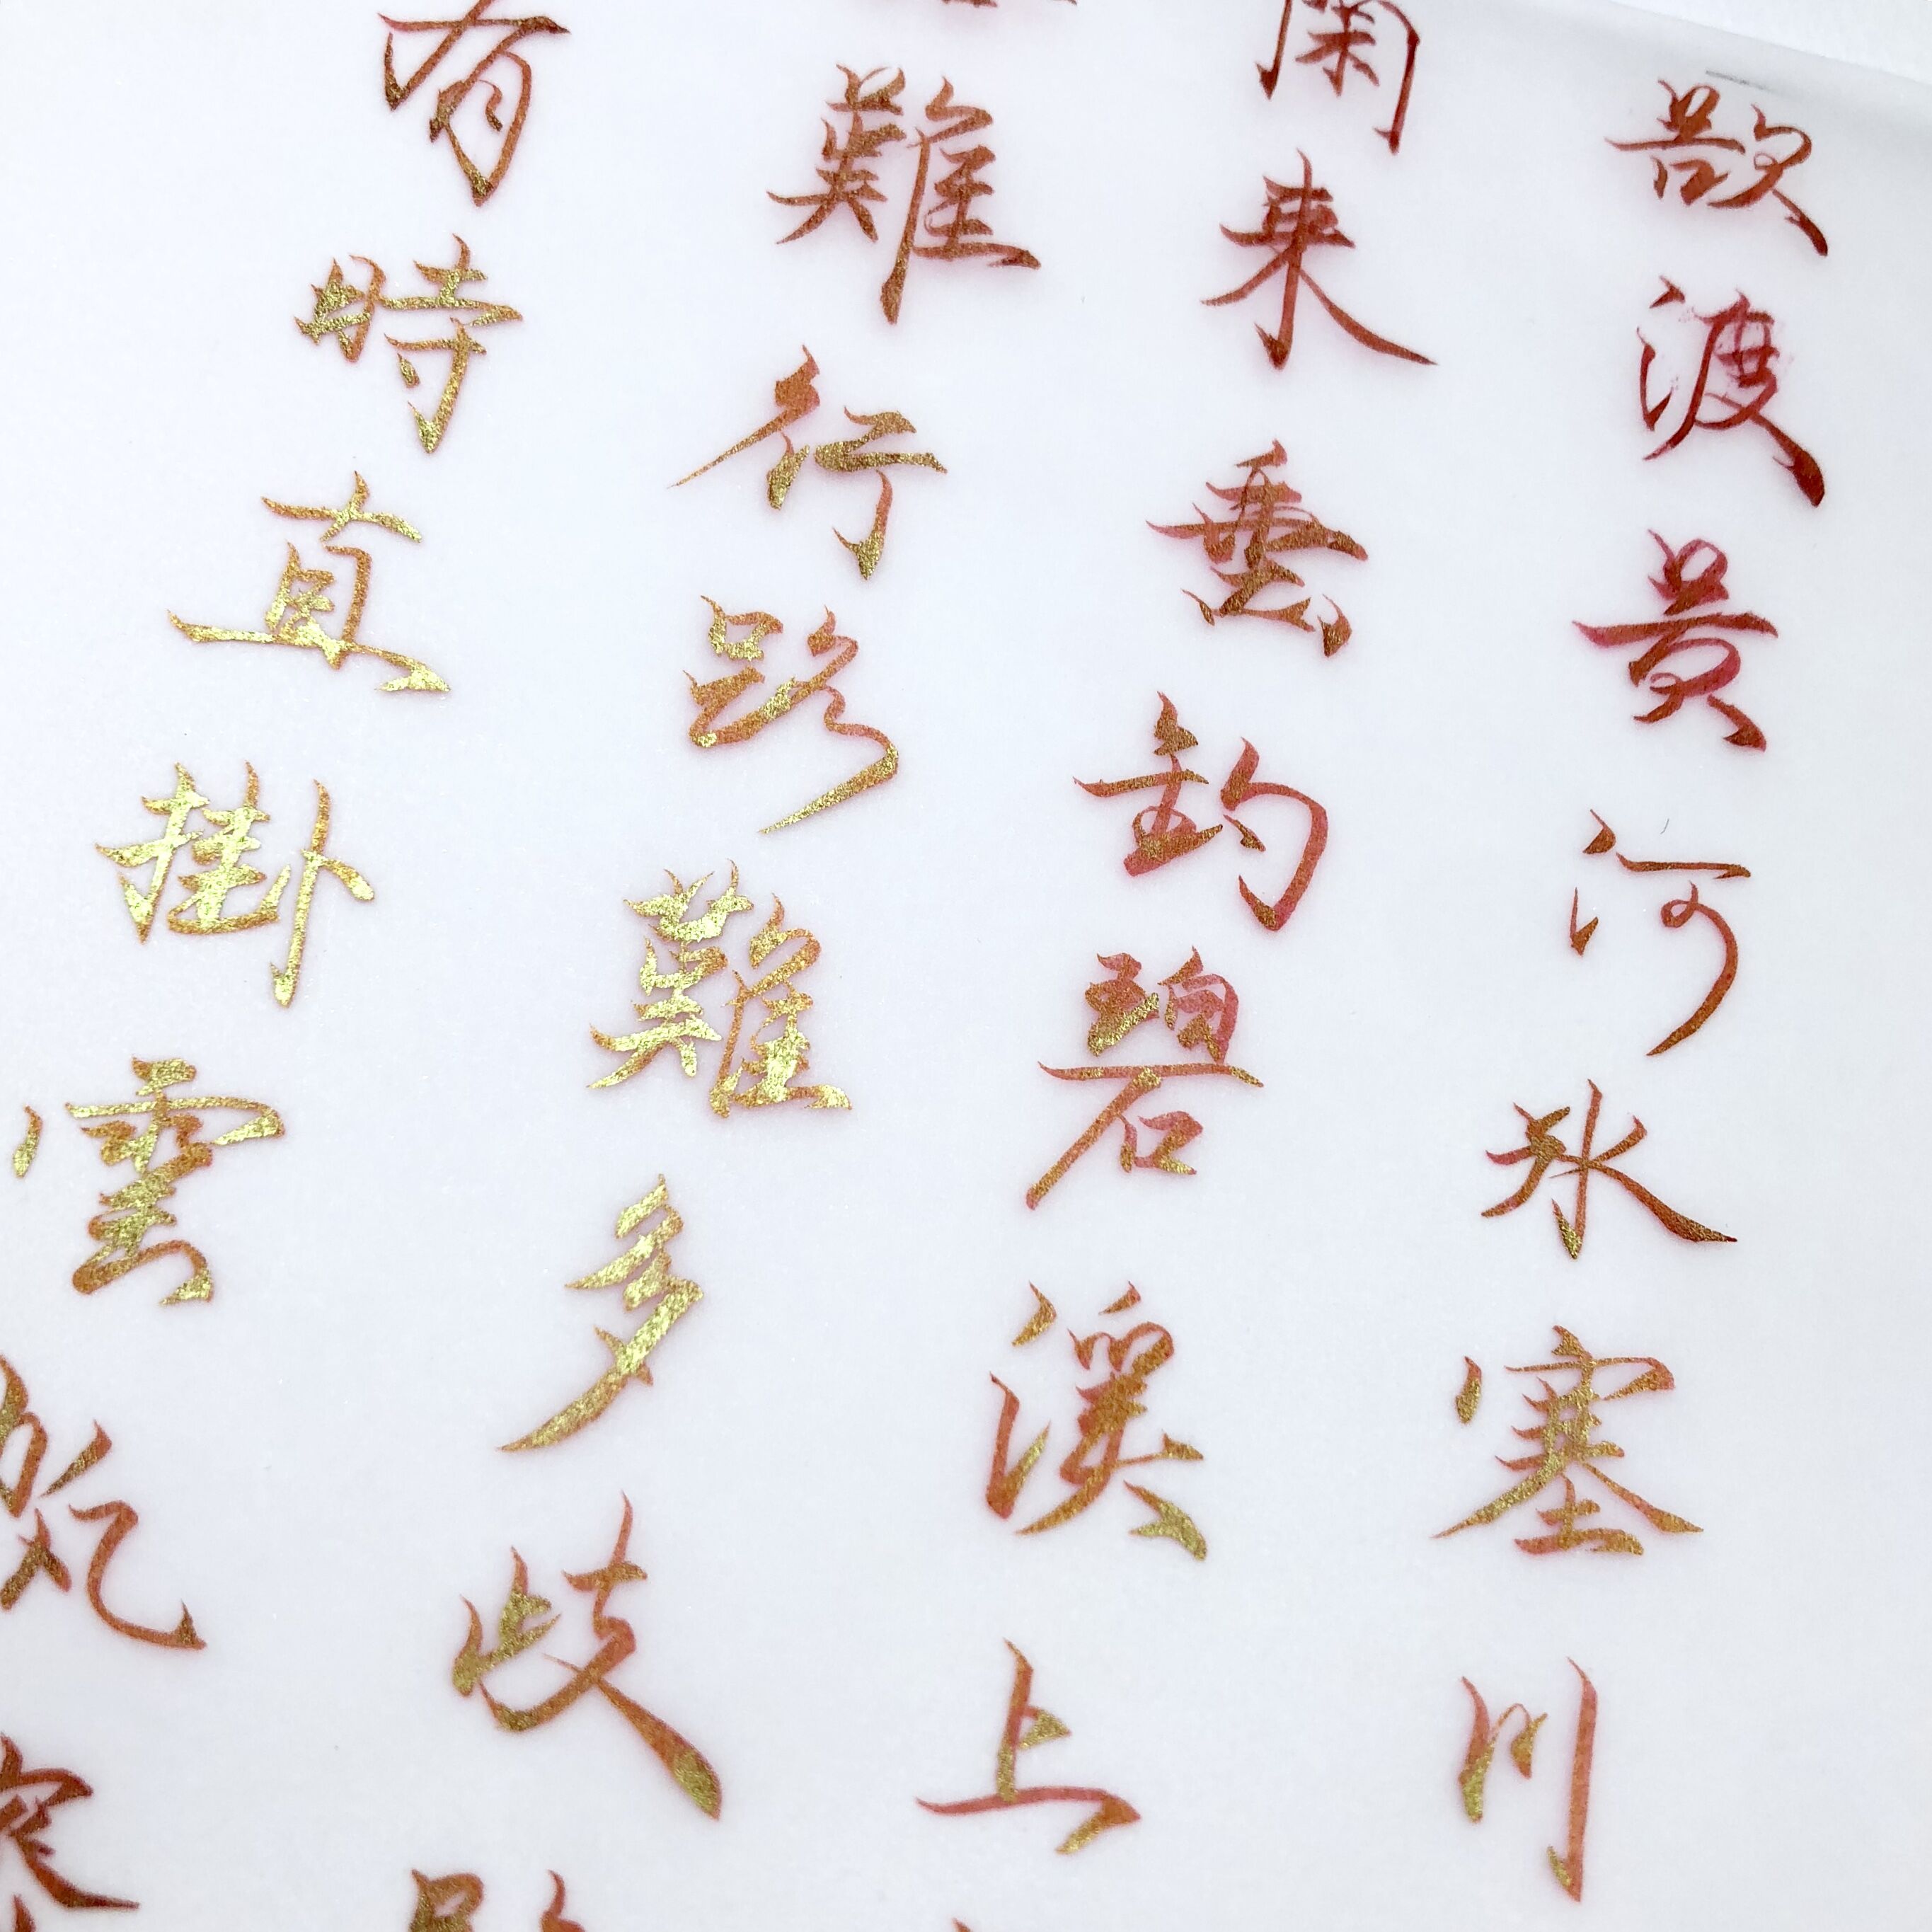 欲渡黃河冰塞川
閑来垂釣碧溪上
難行路難多歧路
有時直掛雲帆濟